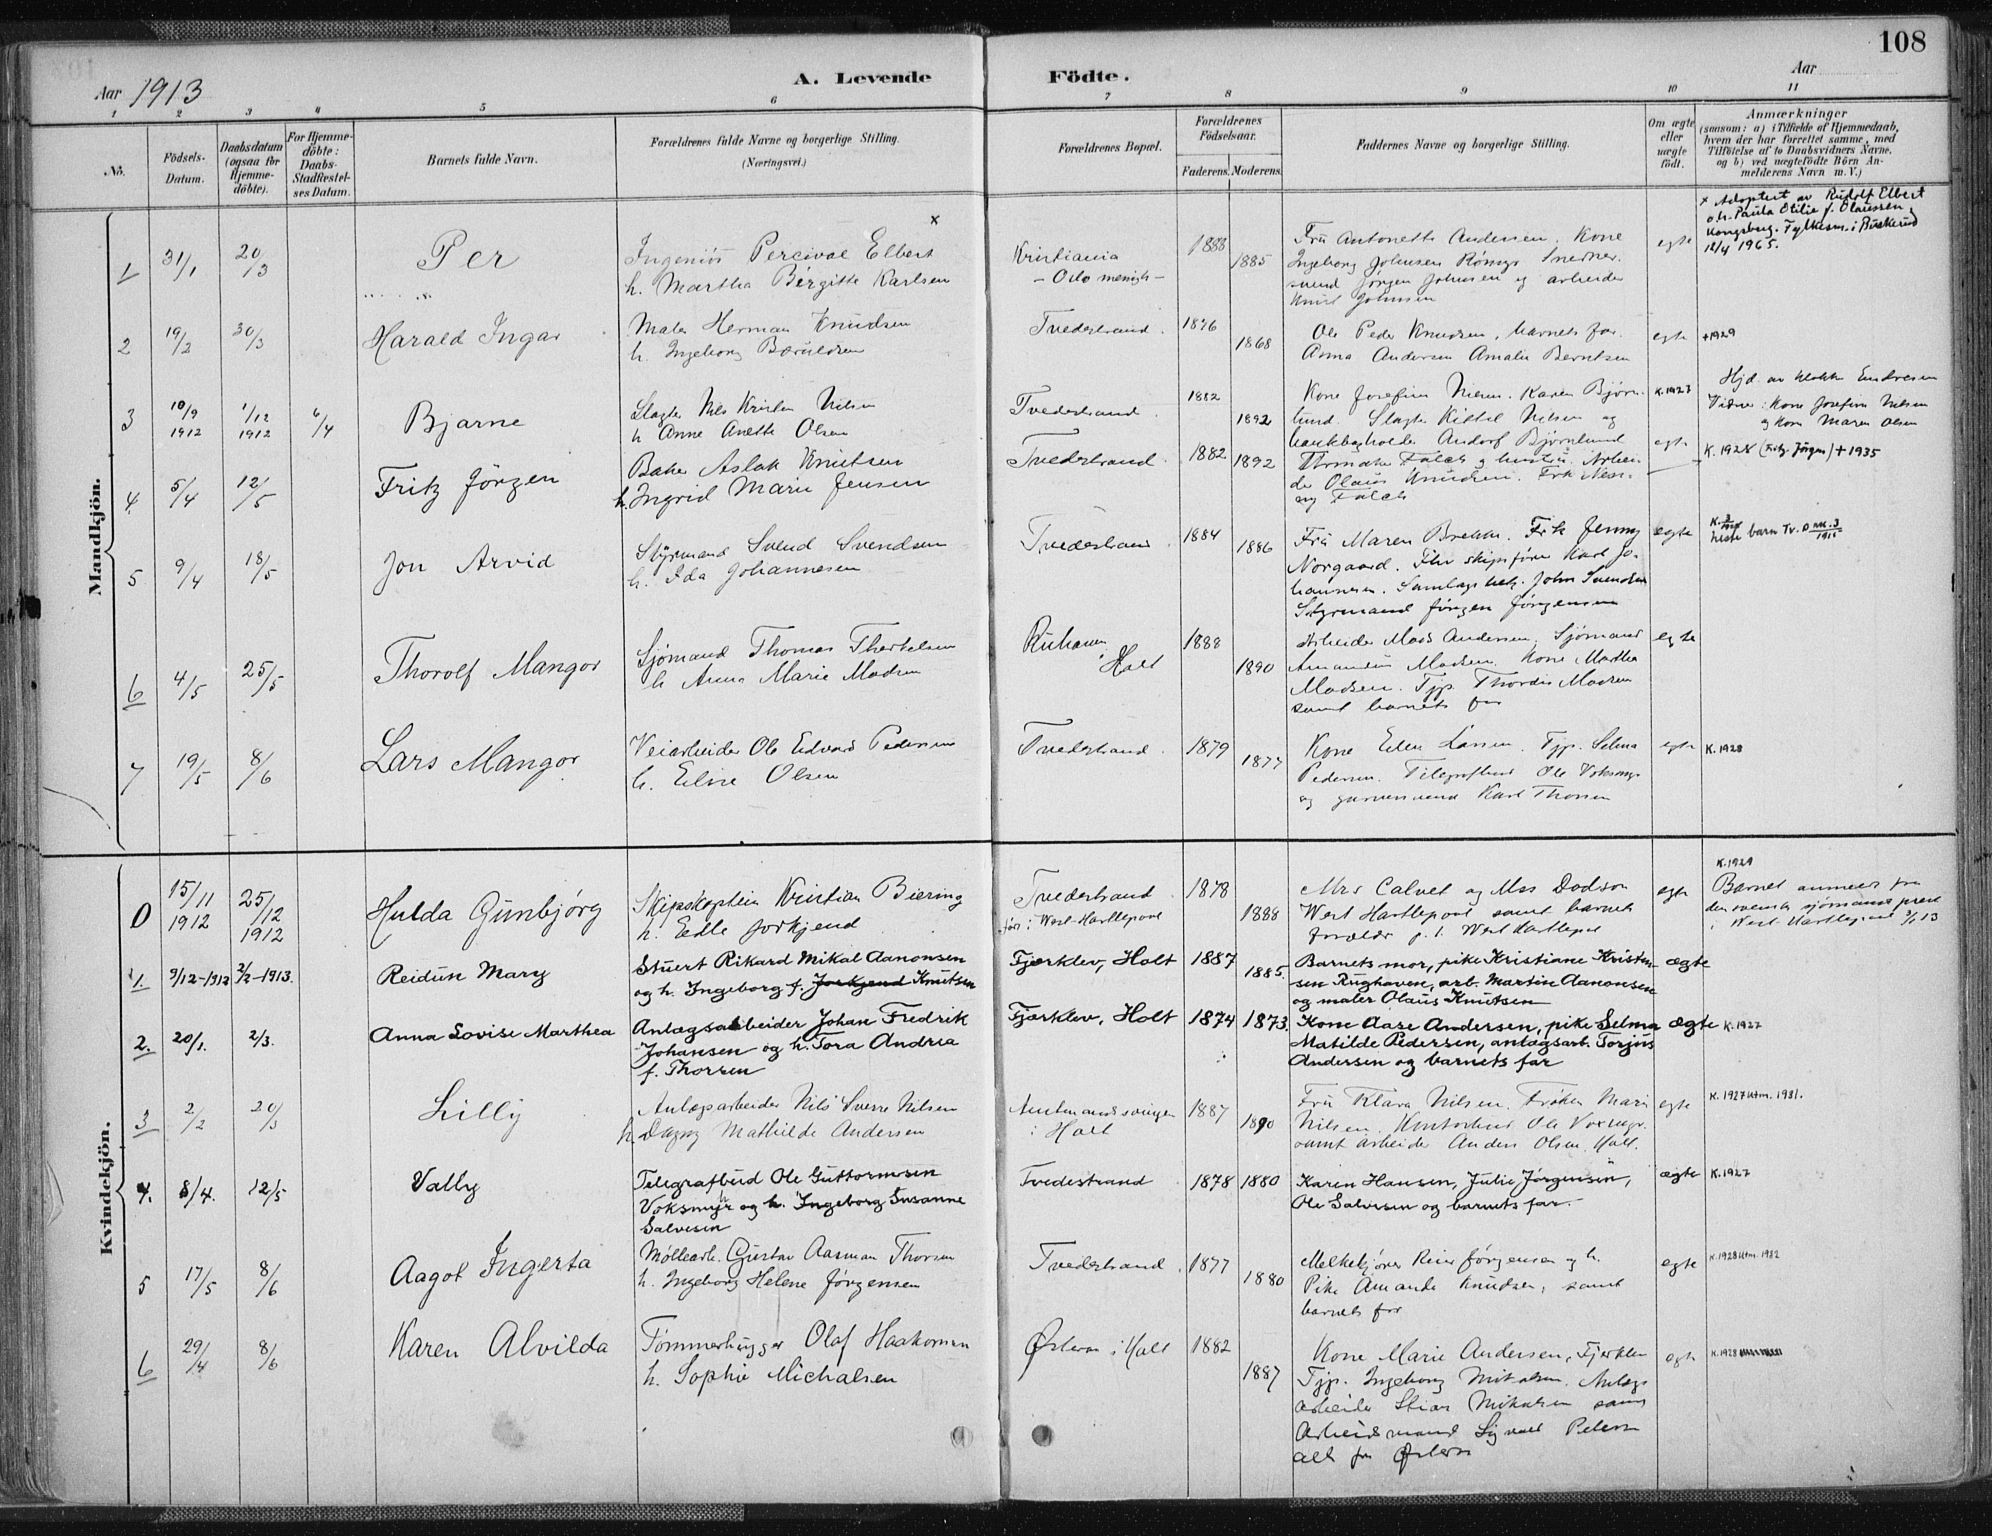 108
Aar 1913
A. Levende Födte.
Aar
1 2 3 4 5 6 7 8 9 10 11
No.
Födsels-Datum.
Daabsdatum (ogsaa for Hjemme-döbte).
For Hjemme-döbte: Daabs-Stadfæstel-ses Datum.
Barnets fulde Navn.
Forældrenes fulde Navne og borgerlige Stilling. (Næringsvei.)
Forældrenes Bopæl.
Forældrenes Födselsaar.
Faderens. Moderens.
Faddernes Navne og borgerlige Stilling.
Om ægte eller uægte födt.
Anmærkninger
(saasom: a) i Tilfælde af Hjemmedaab, hvem der har forrettet samme, med Tilföielse af to Daabsvidners Navne, og b) ved uægtefödte Börn An-melderens Navn m. V.)
Mandkjön.
1 31/1 20/3 Per
Ingeniör Percival Elbert x
h. Martha Birgitte Karlsen
Kristiania
- Oslo menigh -
1888 1885
Fru Antonette Andersen. Kone
Ingeborg Johnsen Snedker-
svend Jörgen Johnsen og arbeider
Knut Johnsen
egte
x Adoptert av Rudolf Elbert
o.h. Paula Otilie f. Olaussen,
Kongsberg. Fylkesm. i Buskerud
12/4 1965.
2 19/2 30/3 Harald Ingar
Maler Herman Knudsen
h. Ingeborg
Tvedestrand.
1876 1868
Ole Peder Knudsen, barnets far.
Anna Andersen Amalie Berntsen
egte +1929
3 10/9 1912 1/12 1912 6/4 Bjarne
Slagter Nils Kristen Nilsen
h Anne Anette Olsen
Tvedestrand
1882 1892
Kone Josefine Nilsen. Karen Bjørn-
lund. Slagter Kittel Nilsen og
Andorf Bjørnlund
egte
K.1923
Hjd. av Endresen
Vidner: Kone Josefine Nilsen
og Kone Maren Olsen
4. 5/4 12/5 Fritz Jörgen
Baker Aslak Knutsen
h. Ingrid Marie Jensen
Tvedestrand.
1882 1892
Falch og hustru, Arbei-
der Olaus Knudsen. Frk
og Falch
K. 1928 (Fritz Jörgen) + 1935
5 9/4 18/5 Jon Arvid
Styrmand Svend Svendsen
h. Ida Johannesen
Tvedestrand.
1884 1886
Fru Maren Brekke. Frk Jenny
Norgaard. Fhv skipsfører Karl Jo-
hannesen. John Svendsen
Styrmand Jörgen Jörgensen
egte
6 4/5 25/5 Thorolf Mangor
Sjömand Thomas Therkelsen
h Anna Marie Madsen
i Holt
1888 1890
Arbeider Mads Andersen. Sjømand
Amandus Madsen. Kone Martha
Madsen. Tjp. Thordis Madsen
samt barnets far
egte
7 19/5 8/6 Lars Mangor
Veiarbeider Ole Edvard Pedersen
h. Elise Olsen
Tvedestrand.
1879 1877
Kone Ellen Larsen. Tjp. Selma
Pedersen. Telegrafbud Ole Voksmyr
og garversvend Karl Thorsen
egte K. 1928
Kvindekjön.
0 15/11 1912 25/12 1912 Hulda Gunbjørg
Skipskaptein Kristian Biering
h. Edle Jorkjend
Tvedestrand.
før i West-Hartlepool
1878 1888
Mrs Calvet og Mss Dodson
West Hartlepool samt barnets
forældre p.t. West Hartlepool
egte
K.1929
Barnet anmeldt fra
den svenske sjömands prest
i West Hartlepool
1. 9/12-1912 2/2-1913. Reidun Mary
Stuert Rikard Mikal Aanonsen
og h. Ingeborg f. Jorkjend Knutsen
Fjærklev, Holt
1887 1885.
Barnets mor, pike Kristiane Kristen-
sen Rughaven, arb. Martin Aanonsen
og maler Olaus Knutsen
ægte
2. 20/1. 2/3. Anna Lovise Marthea
Anlægsarbeider Johan Fredrik
Johansen og h. Tora Andrea
f. Thorsen
Fjærklev, Holt
1874 1873.
Kone Aase Andersen, pike Selma
Matilde Pedersen, anlægsarb. Torjus
Andersen og barnets far
ægte K. 1927
3 2/2 20/3 Lilly
Anlægsarbeider Nils Sverre Nilsen
h. Dagny Mathilde Andersen
Amtmandssvingen
i Holt
1887 1890
Fru Klara Nilsen. Frøken Marie
Nilsen. Kontorbud Ole Voxmyr
samt arbeider Anders Olsen Holt.
egte
K. 1927 Utm. 1931.
4. 8/4. 12/5 Valby
Telegrafbud Ole Guttormsen
Voksmyr og h. Ingeborg Susanne
Salvesen
Tvedestrand
1878 1880
Karen Hansen, Julie Jørgensen,
Ole Salvesen og barnets far.
ægte K.1927
5 17/5 8/6 Aagot Ingerta
Møllearb. Gustav Aasman Thorsen
h. Ingeborg Helene Jørgensen
Tvedestrand.
1877 1880
Melkekjører Jørgensen og h.
Pike Amanda Knudsen, samt
barnets far
egte
K.1928 Utm. 1932
6 29/4 8/6 Karen Alvilda
Tømmerhugger Olaf Haakonsen
h. Sophie Michalsen
Østeraa i Holt
1882 1887
Kone Marie Andersen, Fjerklev
Tjp. Ingeborg Mikalsen. Anlægs
arbeider Mikalsen samt
Arbeidsmand Sigvald Petersen
alle fra Østeraa
egte K.1928